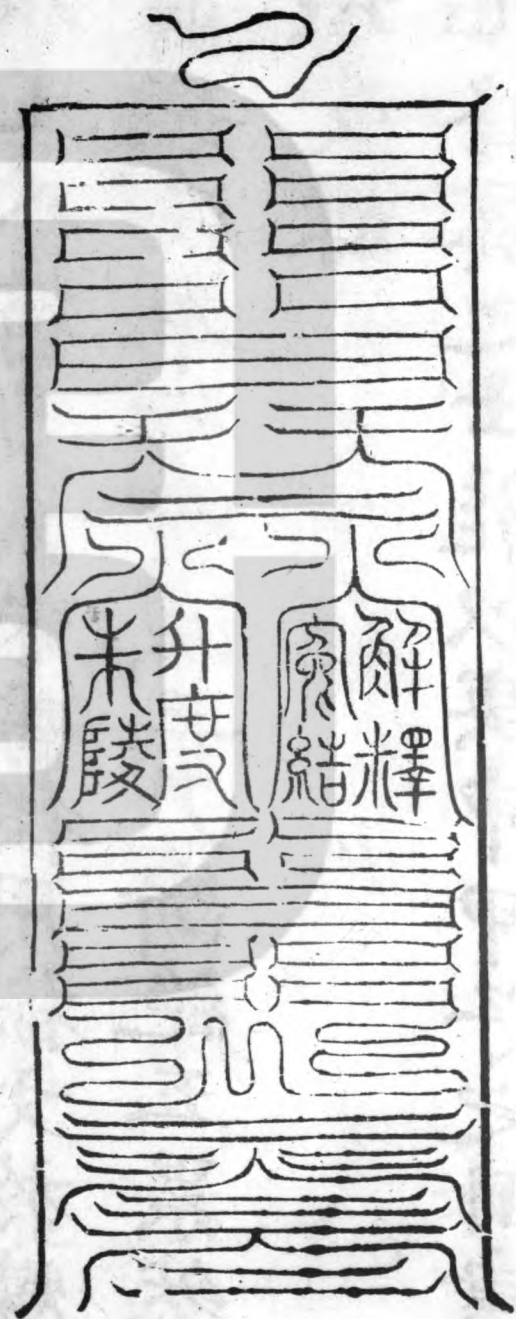 解釋
冤結
升度
朱陵